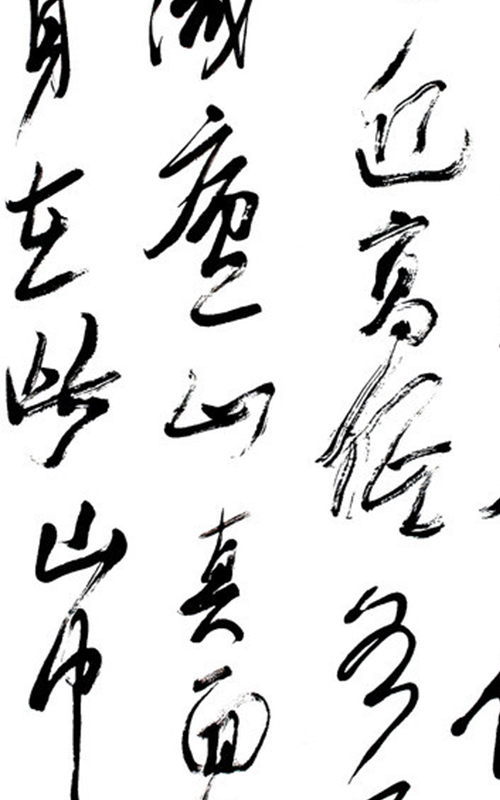 近高低各
識廬山真面
身在此山中